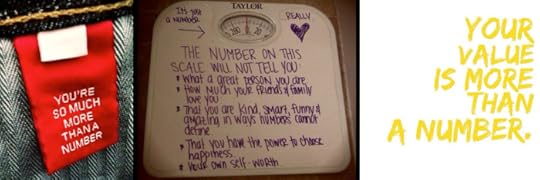 YOU'RE
SO MUCH
MORE
THAN A
NUMBER
TAYLOR
It's just
a number
REALLY
THE NUMBER ON THIS
SCALE WILL NOT TELL YOU:
* What a great person you are
* How much your friends & family
love you
* That you are kind, smart, funny &
amazing in ways numbers cannot
define
* That you have the power to choose
happiness
* Your own self-worth
YOUR
VALUE
IS MORE
THAN
A NUMBER.